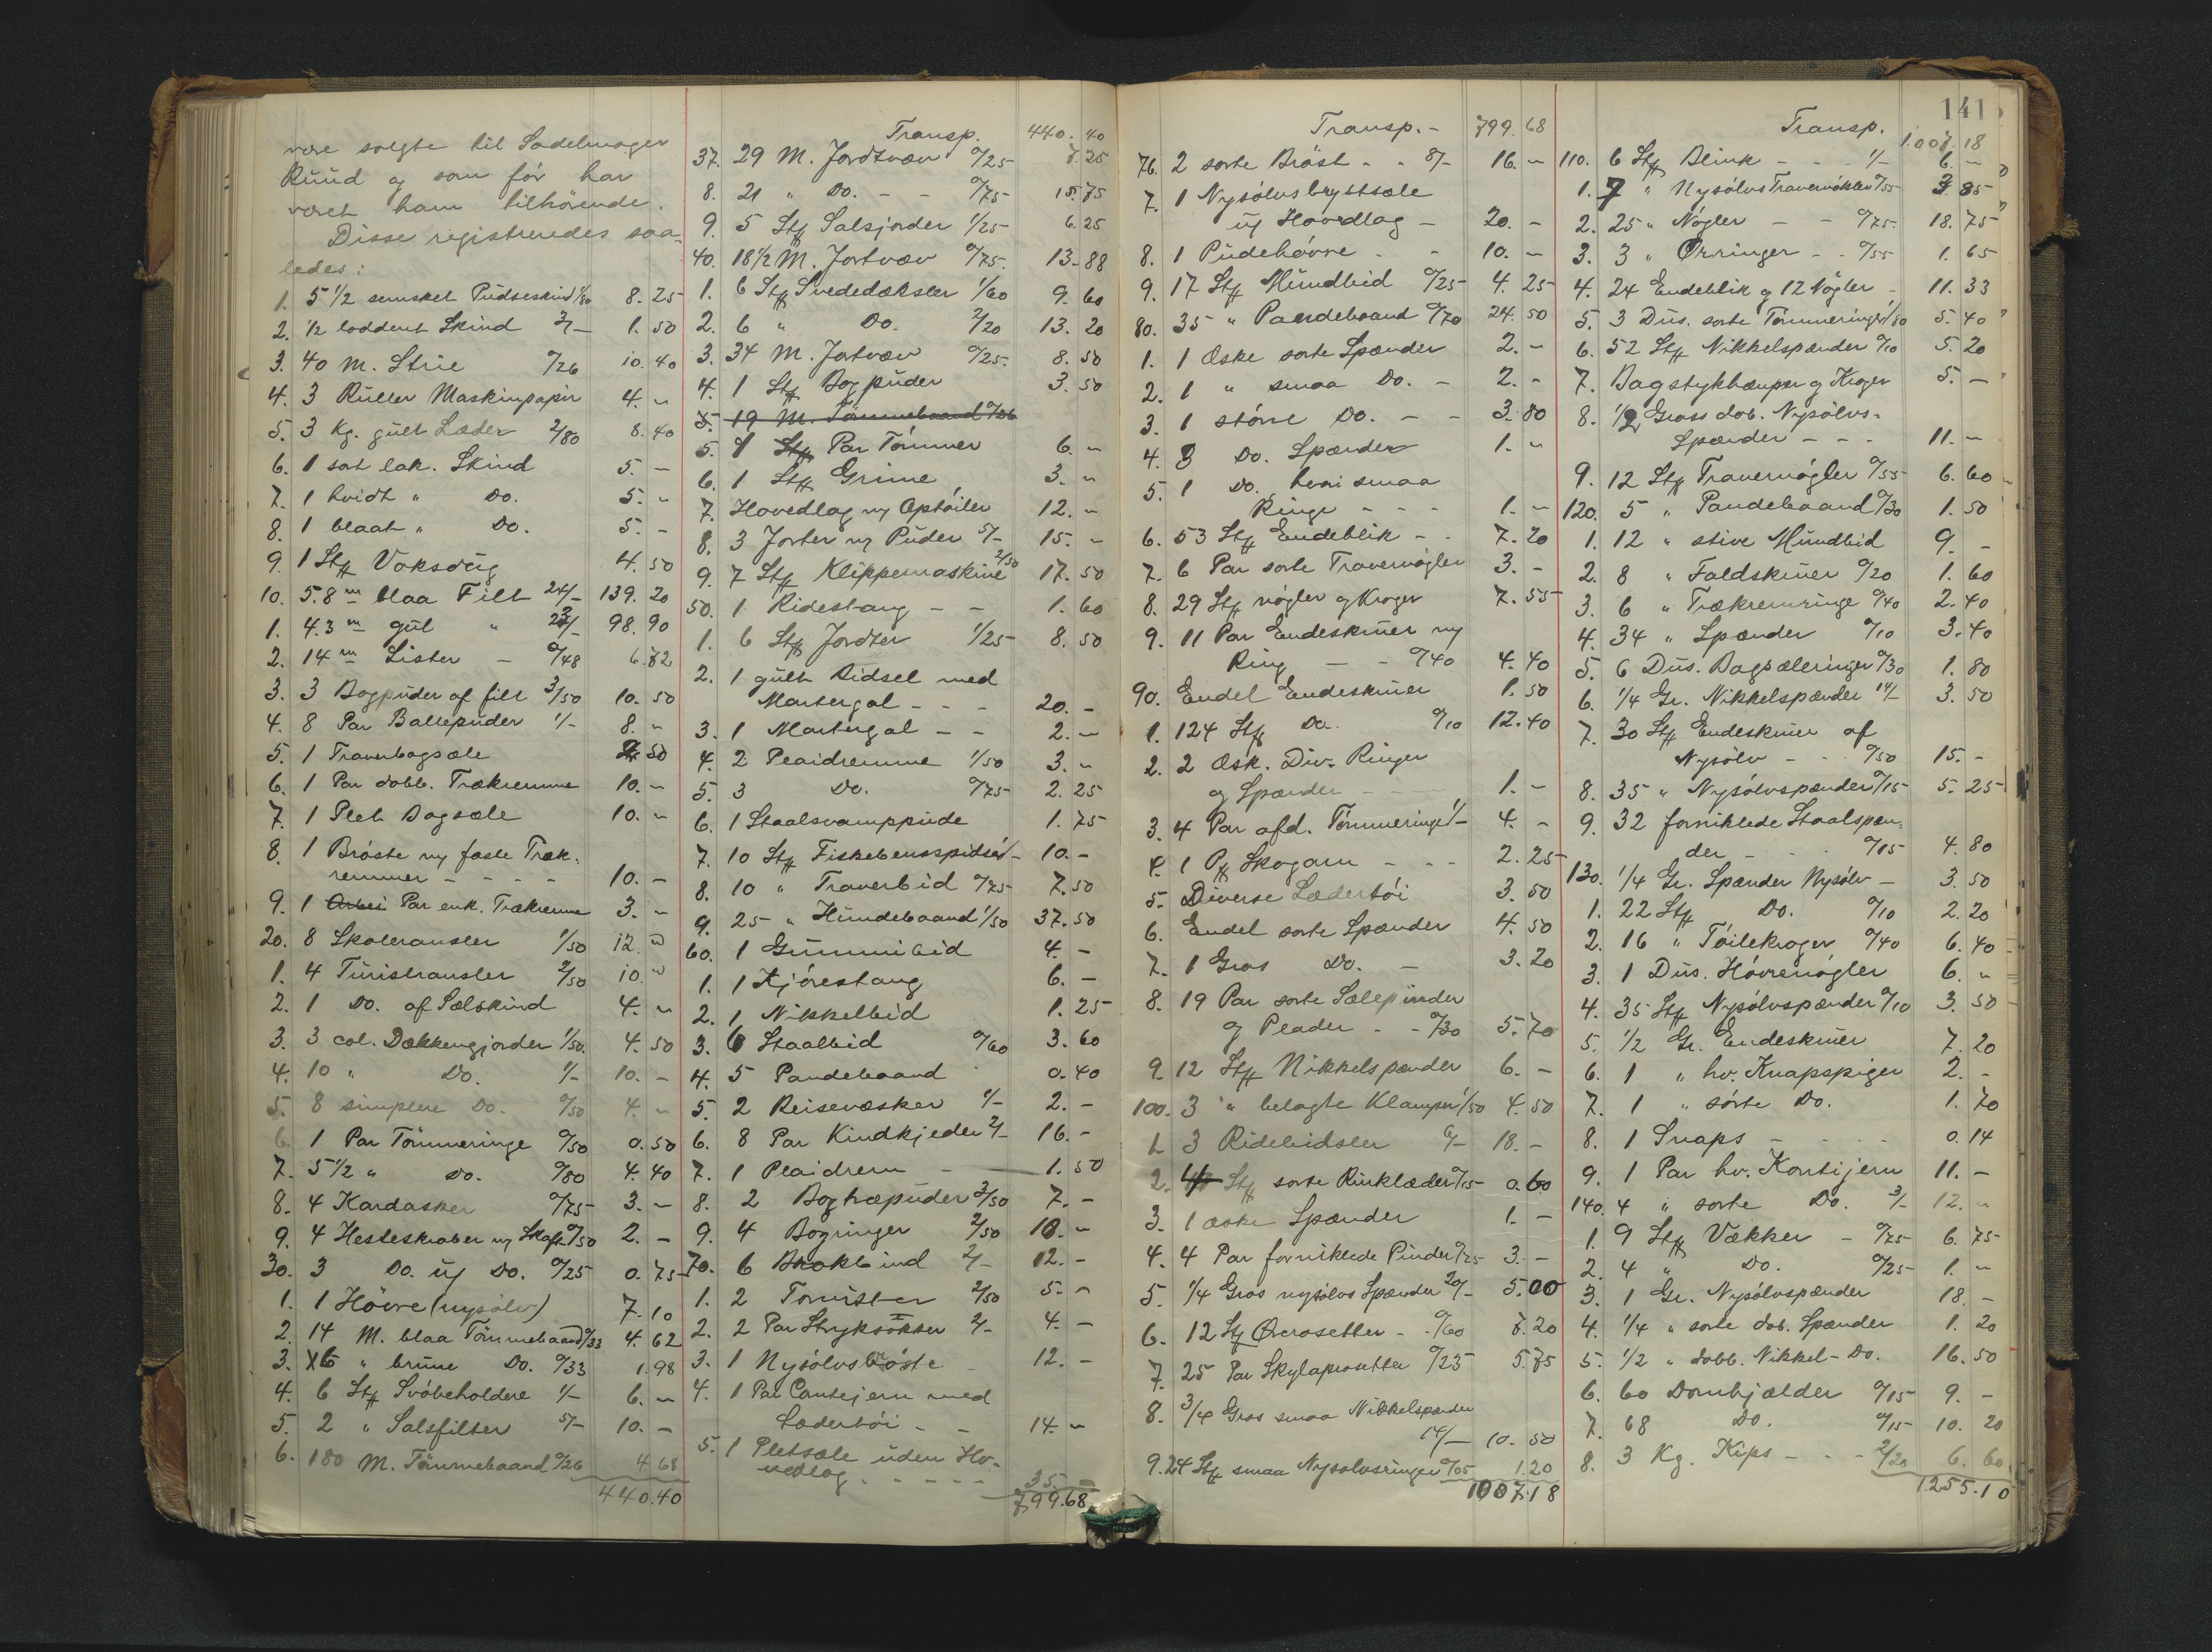 være solgte til Sadelmager
Ruud og som før har
været ham tilhörende.
Disse registreredes saa-
ledes:
1. 5 1/2 semsket Pudseskind 1/50 8.25
2. 1/2 loddent Skind 3/- 1.50
3. 40 M. Strie 0/26 10.40
4. 3 Ruller Maskinpapir 4.-
5. 3 Kg. gult Læder 2/80 8.40
6. 1 sort lak. Skind 5.-
7. 1 hvidt " Do. 5.-
8. 1 blaat " Do. 5.-
9. 1 Stk Voksdug 4.50
10. 5.8 m blaa Filt 24/- 139.20
1. 4.3 m gul " 23/- 98.90
2. 14 m Lister - 0/48 6.72
3. 3 Bogpuder af filt 3/50 10.50
4. 8 Par Ballepuder 1/- 8.-
5. 1 Traverbagsæle 2.50
6. 1 Par dobb. Trækremme 10.-
7. 1 Plet Bagsæle 10.-
8. 1 Bröste m/ faste Træk-
remmer - - - - 10.-
9. 1 Arbei Par enk. Trækremme 3.-
20. 8 Skoleransler 1/50 12.-
1. 4 Turistransler 2/50 10.-
2. 1 Do. af Sælskind 4.-
3. 3 col. Dækkengjorder 1/50. 4.50
4. 10 " Do. 1/- 10.-
5. 8 simplere Do. 0/50 4.-
6. 1 Par Tömmeringe 0/50 0.50
7. 5 1/2 " Do. 0/80 4.40
8. 4 Kardasker 0/75 3.-
9. 4 Hesteskraber m/ Skaft 0/50 2.-
30. 3 Do. u/ Do. 0/25 0.75
1. 1 Hövre (nysölv) 7.10
2. 14 M. blaa Tömmebaand 0/33 4.62
3. 6 " brune Do. 0/33 1.98
4. 6 Stk Svöbeholdere 1/- 6.-
5. 2 " Salsfilter 5/- 10.-
6. 180 M. Tömmebaand 0/26 4.68
440.40
Transp. 440.40
37. 29 M. Jordtvæv 0/25 7.25
8. 21 " Do. - - 0/75 15.75
9. 5 Stk Salsjorder 1/25 6.25
40. 18 1/2 M. Jortvæv 0/75. 13.88
1. 6 Stk Svededæksler 1/60 9.60
2. 6 " Do. 2/20 13.20
3. 34 M. Jortvæv 0/25. 8.50
4. 1 Stk Bogpuder 3.50
5. 19 M. Tömmebaand 0/26
5. 1 Stk Par Tömmer 6.-
6. 1 Stk Grime 3.-
7. Hovedlag m/ Optöiler 12.-
8. 3 Jorter m/ Puder 5/- 15.-
9. 7 Stk Klippemaskine 2/50 17.50
50. 1 Ridestang - - 1.60
1. 6 Stk Jordter 1/25 8.50
2. 1 gult Ridsel med
Martergal - - - 20.-
3. 1 Martergal - - 2.-
4. 2 Plaidremme 1/50 3.-
5. 3 Do. 0/75 2.25
6. 1 Staalsvamppude 1.75
7. 10 Stk Fiskebensspidser 1/- 10.-
8. 10 " Traverbid 0/75 7.50
9. 25 " Hundebaand 1/50 37.50
60. 1 Gummibid 4.-
1. 1 Kjörestang 6.-
2. 1 Nikkelbid 1.25
3. 6 Staalbid 0/60 3.60
4. 5 Pandebaand 0.40
5. 2 Reisevæsker 1/- 2.-
6. 8 Par Kindkjeder 2/- 16.-
7. 1 Plaidrem - 1.50
8. 2 Bogtræpuder 3/50 7.-
9. 4 Bogringer 2/50 10.-
70. 6 Brokbind 2/- 12.-
1. 2 Tornister 2/50 5.-
2. 2 Par Stryksokker 2/- 4.-
3. 1 Nysölvsbröste - 12.-
4. 1 Par Cantejern med
Lædertöi - - 14.-
5. 1 Pletsæle uden Ho-
vedlag. - - - - - 35.-
799.68
Transp.- 799.68
76. 2 sorte Bröst - - 8/- 16.-
7. 1 Nysölvsbrystsæle
u/ Hovedlag - 20.-
8. 1 Pudehövre - - 10.-
9. 17 Stk Mundbid 0/25 4.25
80. 35 " Pandebaand 0/70 24.50
1. 1 Æske sorte Spænder 2.-
2. 1 " smaa Do. - 2.-
3. 1 större Do. - - 3.80
4. 3 Do. Spænder 1.-
5. 1 Do. hvori smaa
Ringe - - - 1.-
6. 53 Stk Endeblik - - 7.20
7. 6 Par sorte Travernögler 3.-
8. 29 Stk nögler og Kroger 7.55
9. 11 Par Endeskruer m/
Ring - - 0/40 4.40
90. Endel Endeskruer 1.50
1. 124 Stk Do. 0/10 12.40
2. 2 Æsk. Div. Ringer
og Spænder - - - 1.-
3. 4 Par afd. Tömmeringe 1/- 4.-
4. 1 Pk Skogarn - - - 2.25
5. Diverse Lædertöi 3.50
6. Endel sorte Spænder 4.50
7. 1 Gros Do. - 3.20
8. 19 Par sorte Sælepinder
og Plader - - 0/30 5.70
9. 12 Stk Nikkelspænder 6.-
100. 3 " belagte Klamper 1/50 4.50
1. 3 Ridebidsler 6/- 18.-
2. 4 Stk sorte Rinklæder 0/15 0.60
3. 1 æske Spænder 1.-
4. 4 Par forniklede Pinder 0/75 3.-
5. 1/4 Gros nysölvs Spænder 20/- 5.00
6. 12 Stk Örerosetter - 0/60 7.20
7. 25 Par Skylaprosetter 0/23 5.75
8. 3/4 Gros smaa Nikkelspænder
14/- 10.50
9. 24 Stk smaa Nysolvsringer 0/05 1.20
1007.18
141
Transp. 1.007.18
110. 6 Stk Blink - - - 1/- 6.-
1. 7 " Nysölvs Travernökler 0/55 3.85
2. 25 " Nögler - - 0/75. 18.75
3. 3 " Örringer - - 0/55 1.65
4. 24 Endeblik og 12 Nögler - 11.33
5. 3 Dus. sorte Tömmeringer 1/80 5.40
6. 52 Stk Nikkelspænder 0/10 5.20
7. Bagstykkämper og Kroger 5.-
8. 1/2 Gross dob. Nysölvs-
Spænder - - - 11.-
9. 12 Stk Travernögler 0/55 6.60
120. 5 " Pandebaand 0/30 1.50
1. 12 " stive Mundbid 9.-
2. 8 " Faldskruer 0/20 1.60
3. 6 " Trækremringe 0/40 2.40
4. 34 " Spænder 0/10 3.40
5. 6 Dus. Bagsæleringer 0/30 1.80
6. 1/4 Gr. Nikkelspænder 14/- 3.50
7. 30 Stk Endeskruer af
Nysölv - - 0/50 15.-
8. 35 " Nysölvspænder 0/15 5.25
9. 32 forniklede Staalspæn-
der - - - 0/15 4.80
130. 1/4 Gr. Spænder Nysölv - 3.50
1. 22 Stk Do. 0/10 2.20
2. 16 " Töilekroger 0/40 6.40
3. 1 Dus. Hövrenögler 6.-
4. 35 Stk Nysölvspænder 0/10 3.50
5. 1/2 Gr. Endeskruer 7.20
6. 1 " hv. Knapspiger 2.-
7. 1 " sorte Do. 1.70
8. 1 Snaps - - - - 0.14
9. 1 Par hv. Kontijern 11.-
140. 4 " sorte Do. 3/- 12.-
1. 9 Stk Vækker - 0/75 6.75
2. 4 " Do. 0/25 1.-
3. 1 Gr. Nysölvspænder 18.-
4. 1/4 " sorte dob. Spænder 1.20
5. 1/2 " dobb. Nikkel-Do. 16.50
6. 60 Dombjælder 0/15 9.-
7. 68 Do. 0/15 10.20
8. 3 Kg. Kips - - - 2/20 6.60
1.255.10